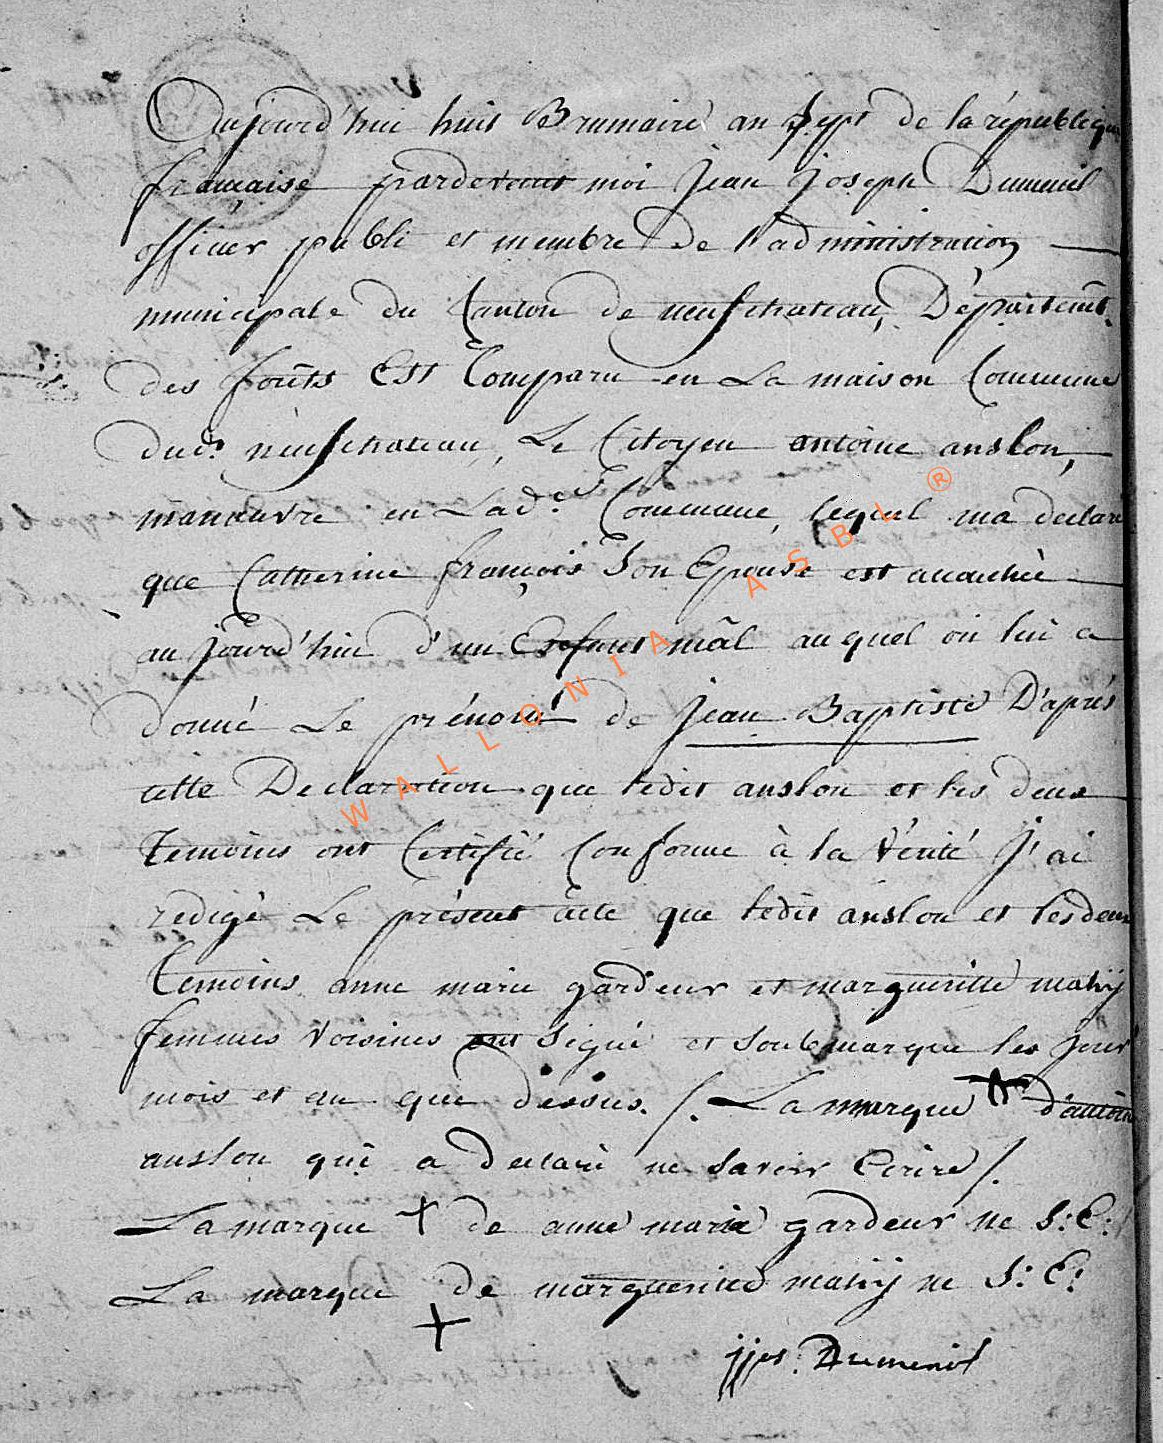 Aujourd'hui huit Brumaire an Sept de la république
française pardevant moi jean joseph Dumenil
officier publi et membre de l'administration
municipale du Canton de neufchateau, Départemt.
des forêts Est Comparu en La maison Commune
dudt. neufchateau, Le Citoyen antoine anslon,
manœuvre en Ladte. Commune, lequel ma declaré
que Catherine françois Son Epouse est accouchée
aujourd'hui d'un Enfant mâl auquel on lui a
donné Le prénom de jean Baptiste D'après
cette Declaration que ledit anslon et les deux
Temoins ont Certifié Conforme à la Vérité J'ai
redigé Le présent acte que ledit anslon et les deux
Temoins anne marie gardeur et marguerite mahy
femmes voisines ont Signé et Soubmarque les jour
mois et an que dessus. /. La marque d'antoine
anslon qui a declaré ne Savoir Ecrire /.
La marque + de anne marie gardeur ne S: E:
La marque + de marguerite mahy ne S: E:
jjph. Dumenil
WALLONIA ASBL ®